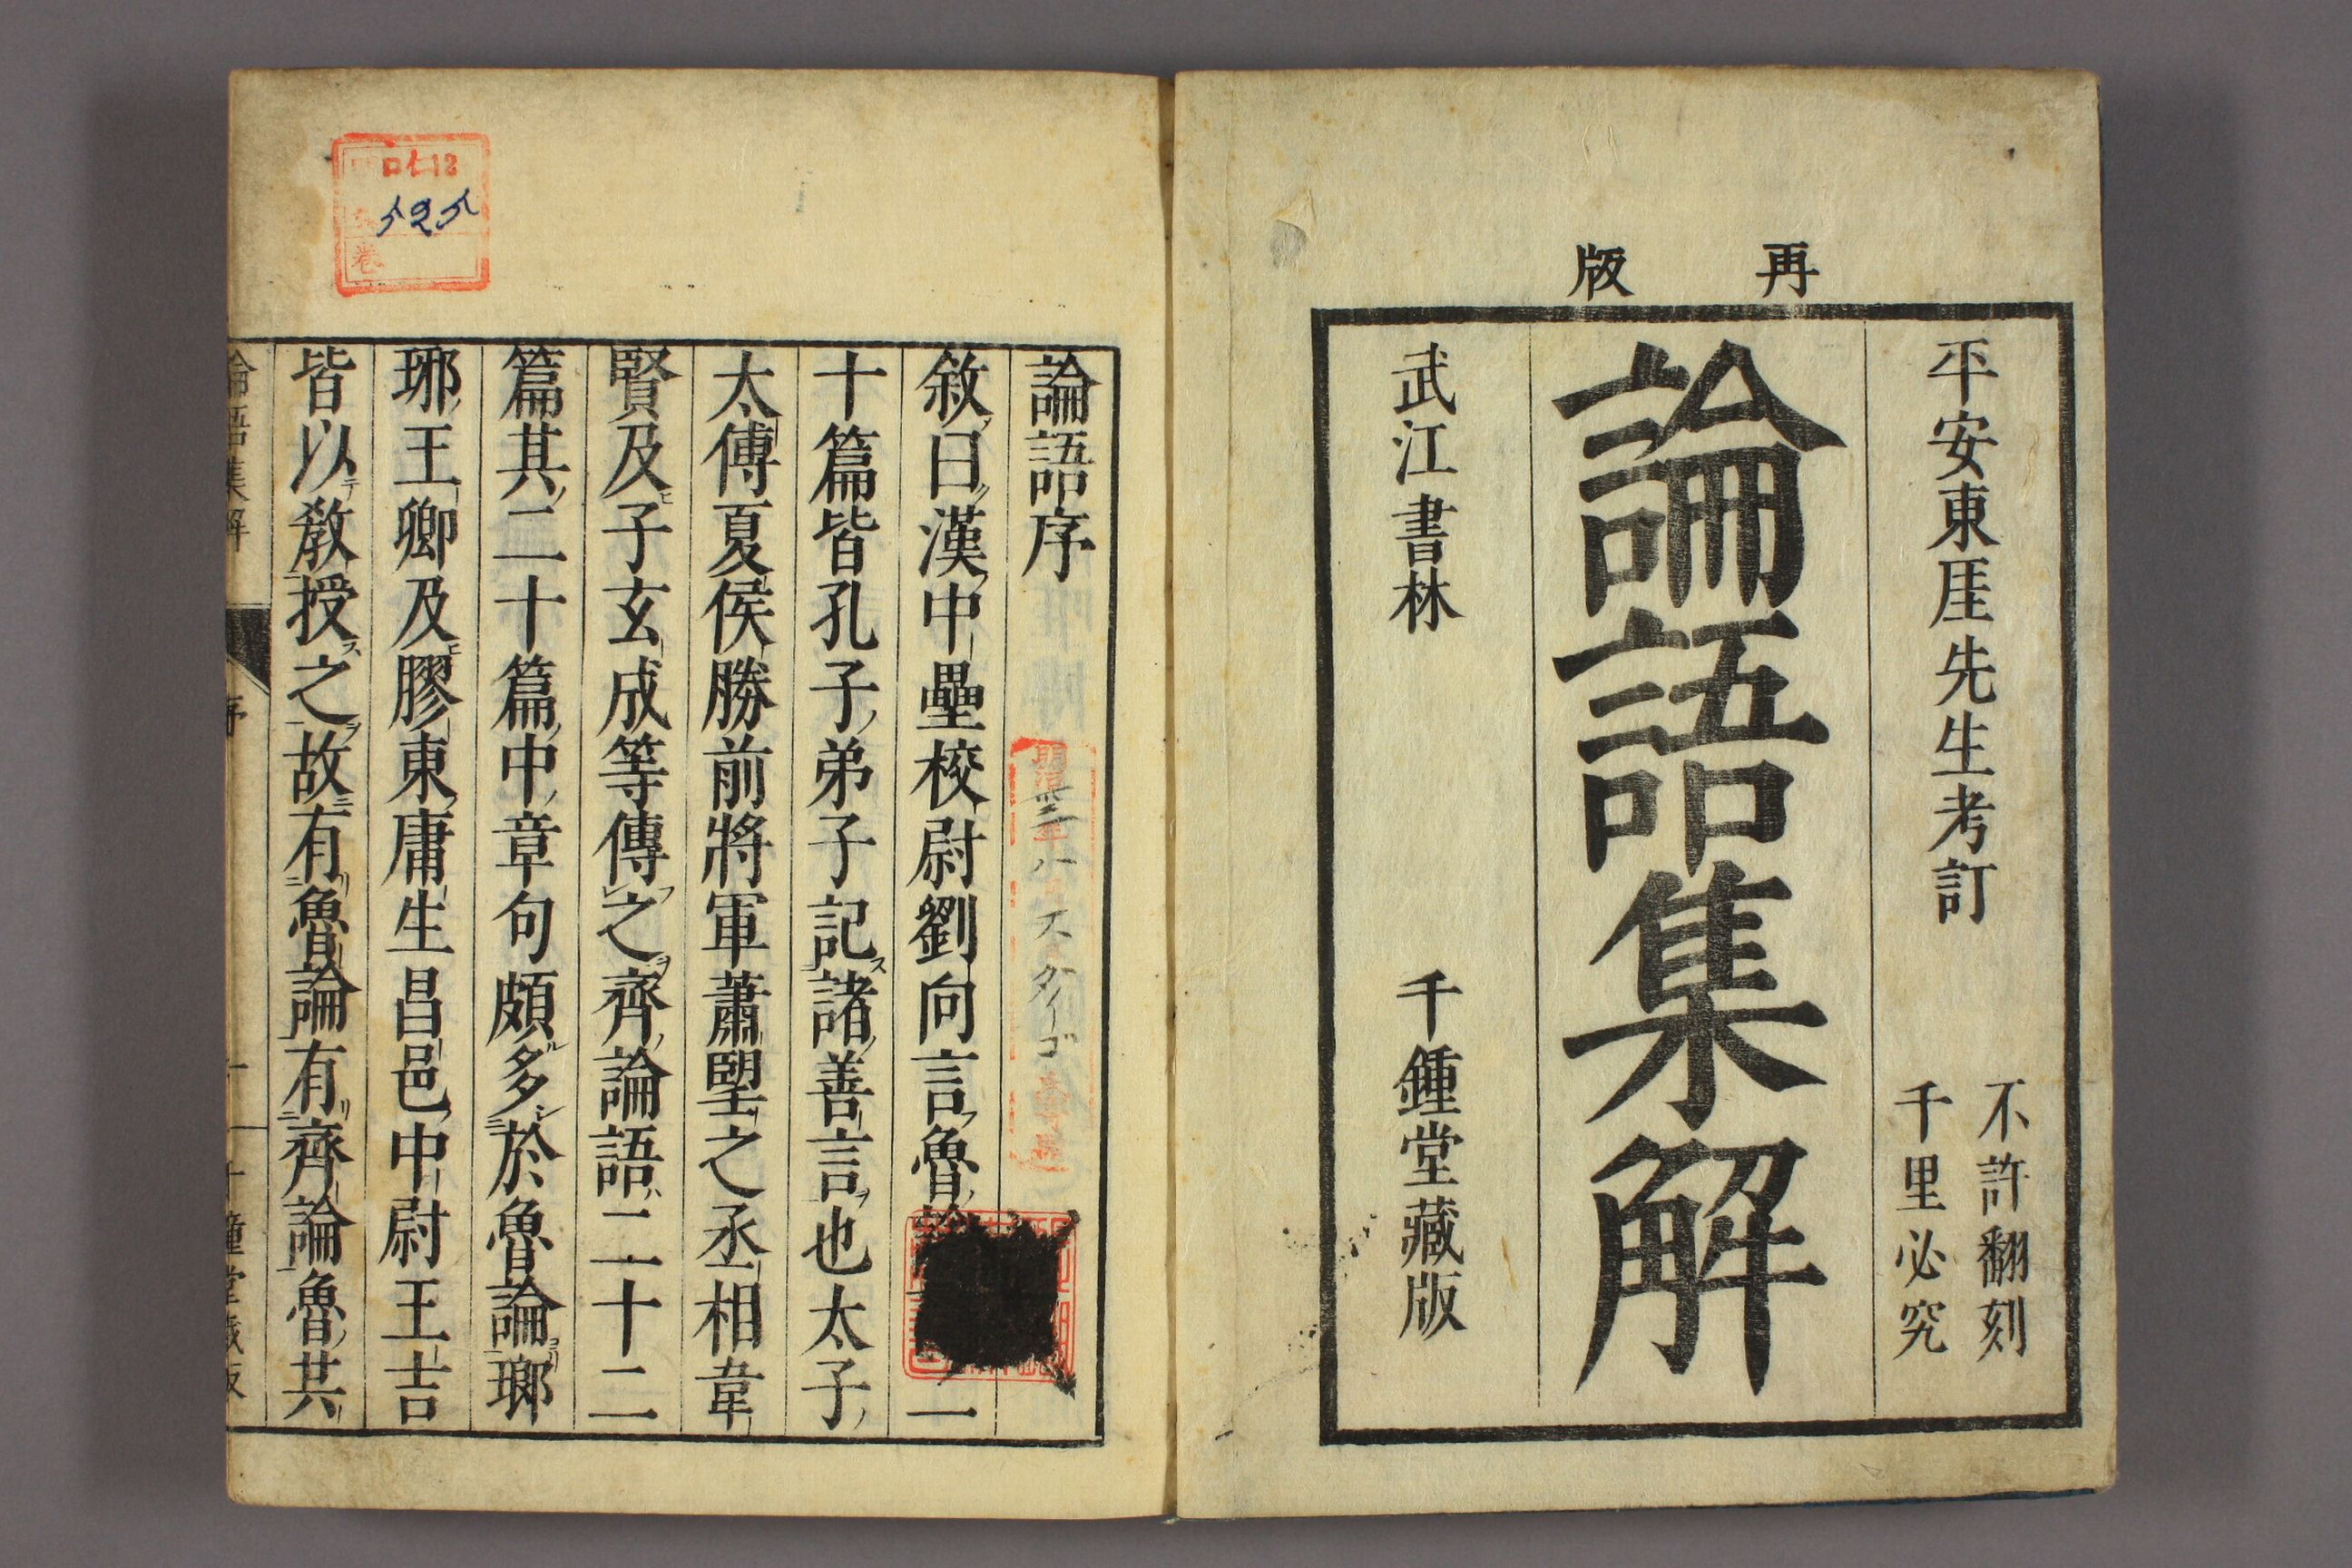 再版
平安東厓先生考訂
不許翻刻
千里必究
論語集解
武江書林
千鍾堂藏版
論語序
敘曰漢中壘校尉劉向言魯二
十篇皆孔子弟子記諸善言也太子
太傅夏侯勝前將軍蕭望之丞相韋
賢及子玄成等傳之齊論語二十二
篇其二十篇中章句頗多於魯論瑯
琊王卿及膠東庸生昌邑中尉王吉
皆以敎授之故有魯論有齊論魯共
論語集解
序
千鍾堂藏版
ロ仁12
525
卷